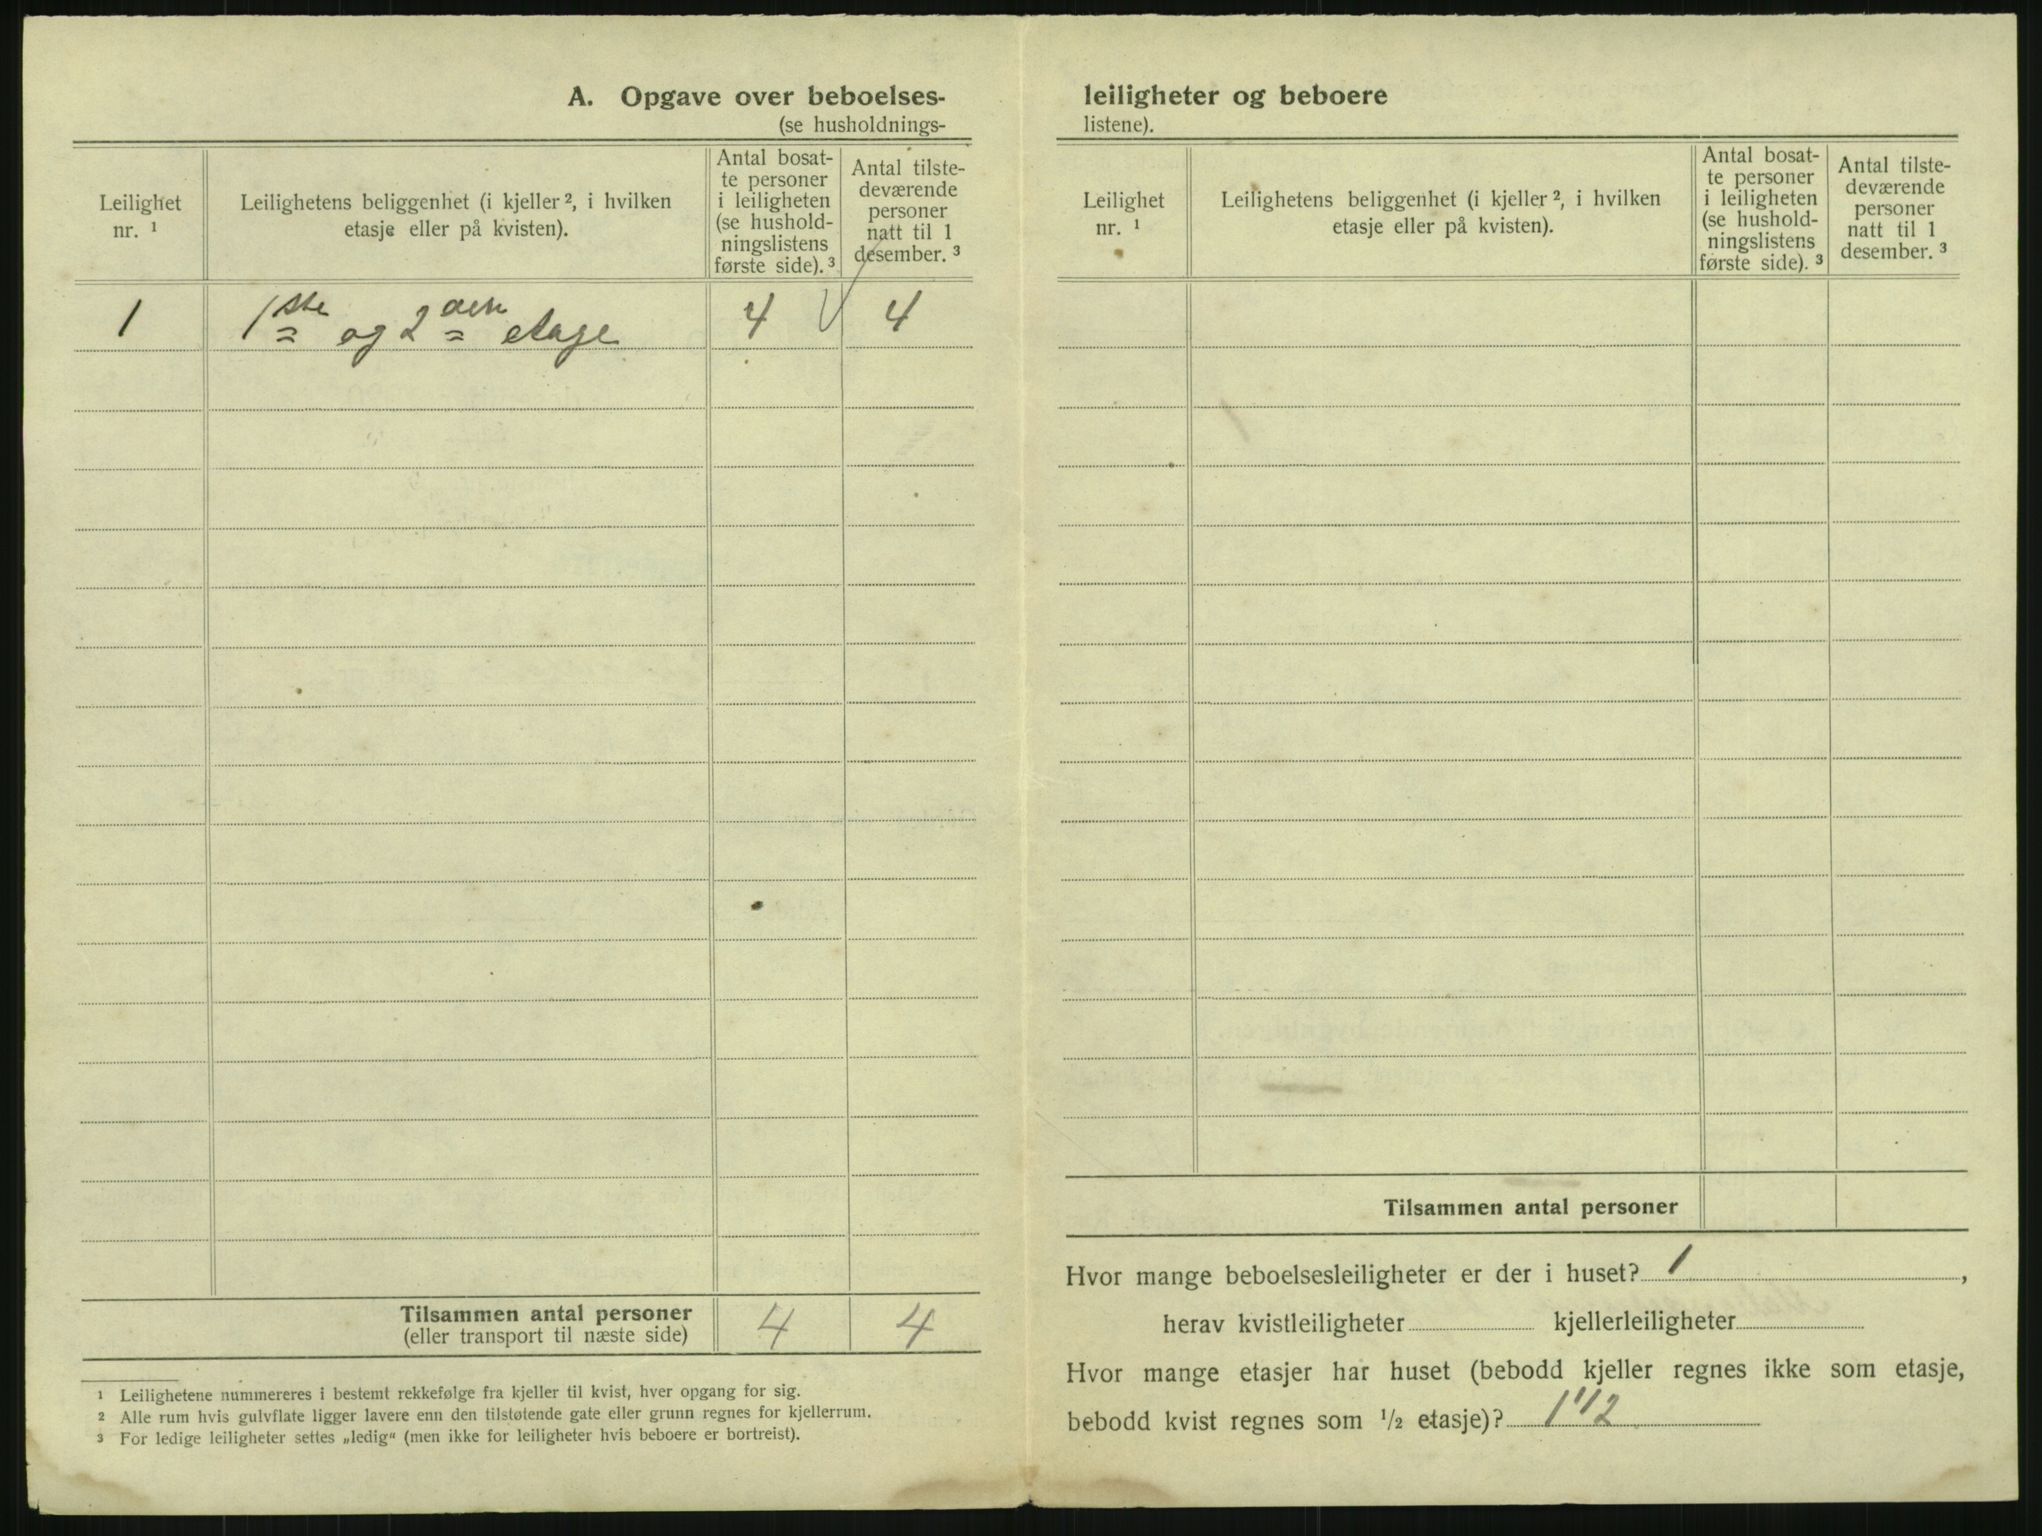 A. Opgave over beboelses-
(se husholdnings-
Leilighet nr. ¹
Leilighetens beliggenhet (i kjeller ², i hvilken etasje eller på kvisten).
Antal bosat-
te personer
i leiligheten
(se hushold-
ningslistens
første side). ³
Antal tilste-
deværende
personer
natt til 1
desember. ³
1 1ste og 2den etage 4 4
Tilsammen antal personer 4 4
(eller transport til næste side)
¹ Leilighetene nummereres i bestemt rekkefølge fra kjeller til kvist, hver opgang for sig.
² Alle rum hvis gulvflate ligger lavere enn den tilstøtende gate eller grunn regnes for kjellerrum.
³ For ledige leiligheter settes „ledig“ (men ikke for leiligheter hvis beboere er bortreist).
leiligheter og beboere
listene).
Leilighet nr. ¹
Leilighetens beliggenhet (i kjeller ², i hvilken etasje eller på kvisten).
Antal bosat-
te personer
i leiligheten
(se hushold-
ningslistens
første side). ³
Antal tilste-
deværende
personer
natt til 1
desember. ³
Tilsammen antal personer
Hvor mange beboelsesleiligheter er der i huset? 1,
herav kvistleiligheter kjellerleiligheter
Hvor mange etasjer har huset (bebodd kjeller regnes ikke som etasje,
bebodd kvist regnes som ½ etasje)? 1 1/2